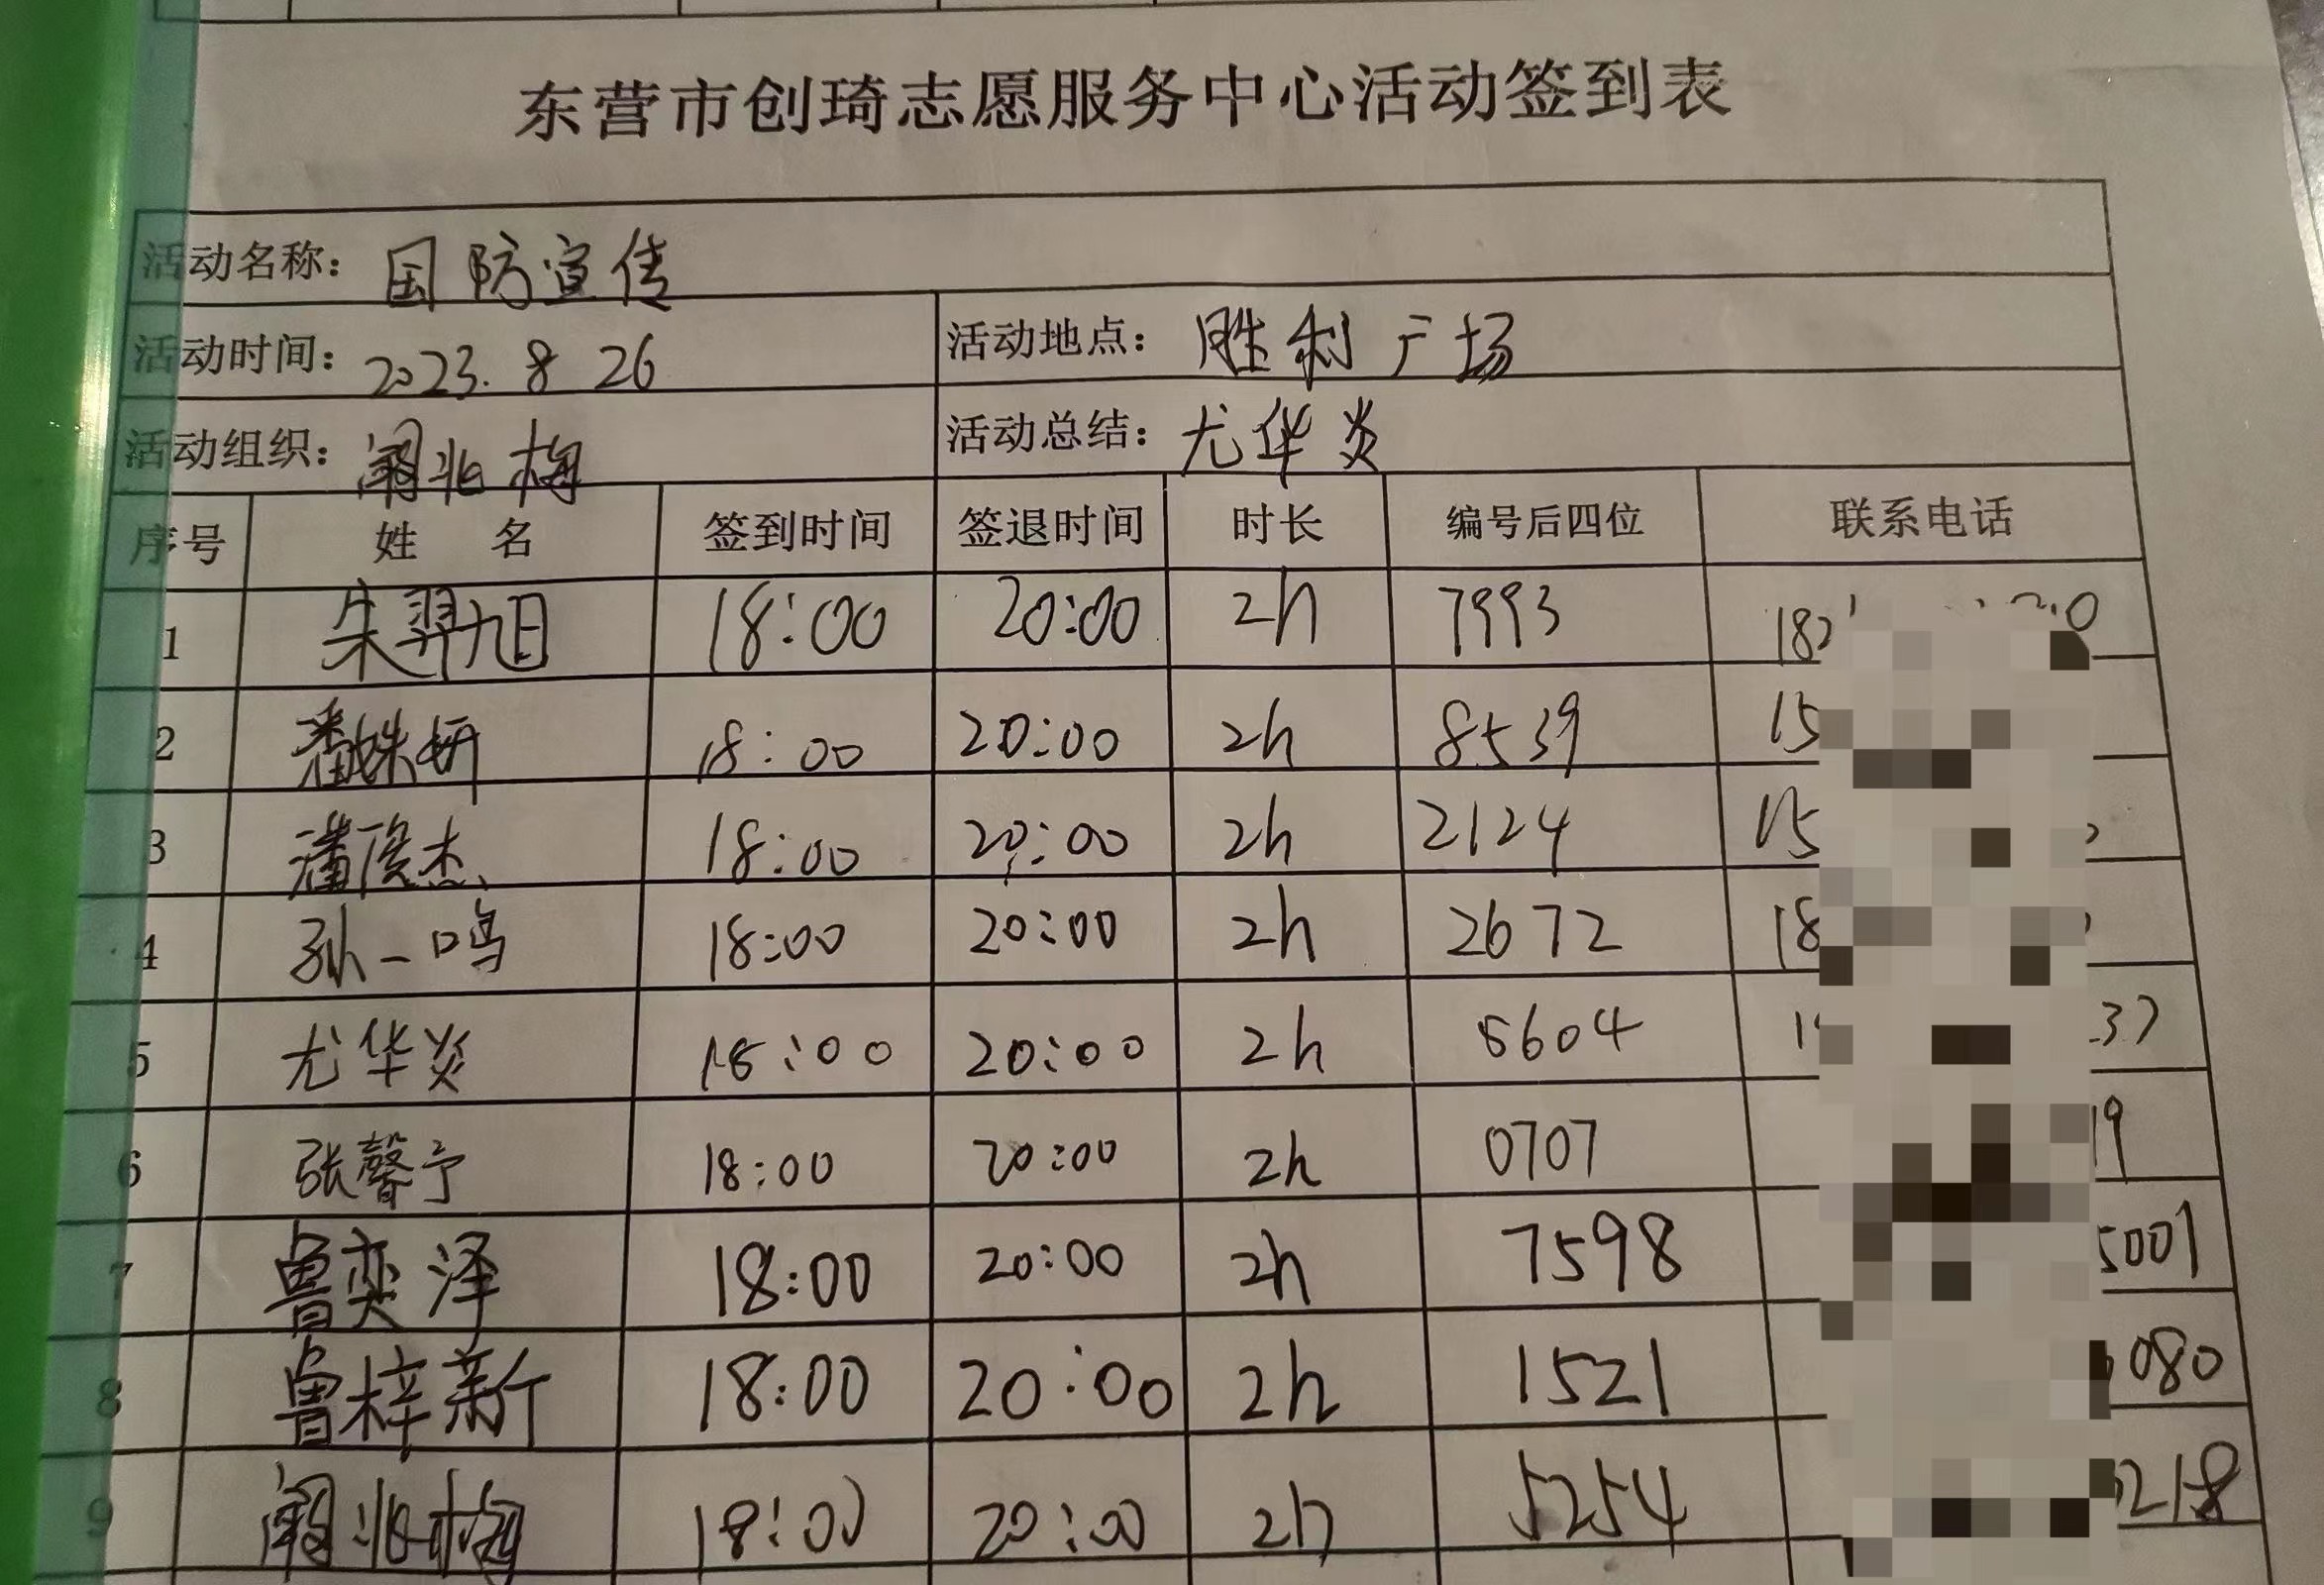 东营市创琦志愿服务中心活动签到表
活动名称：国防宣传
活动时间：2023.8 26 活动地点：胜利广场
活动组织： 活动总结：尤华炎
序号 姓 名 签到时间 签退时间 时长 编号后四位 联系电话
1 朱羿旭 18:00 20:00 2h 7993 182
2 潘姝妍 18:00 20:00 2h 8539 15
3 潘俊杰 18:00 20:00 2h 2124 15
4 孙一鸣 18:00 20:00 2h 2672 18
5 尤华炎 18:00 20:00 2h 8604 37
6 张馨予 18:00 20:00 2h 0707 19
7 鲁奕泽 18:00 20:00 2h 7598 5001
8 鲁梓新 18:00 20:00 2h 1521 080
9 18:00 20:00 2h 5254 218